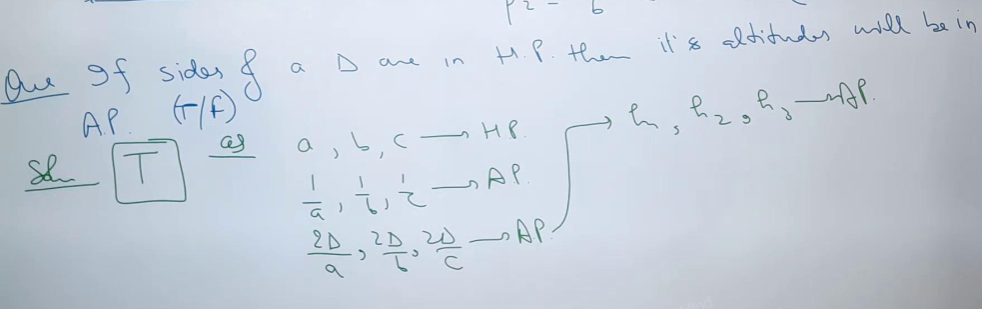 p2 = 6
Que If sides of a Δ are in H.P. then it's altitudes will be in
A.P. (T/F)
Soln T as a, b, c → HP.
1/a, 1/b, 1/c → AP.
2Δ/a, 2Δ/b, 2Δ/c → AP. → h1, h2, h3 → AP.